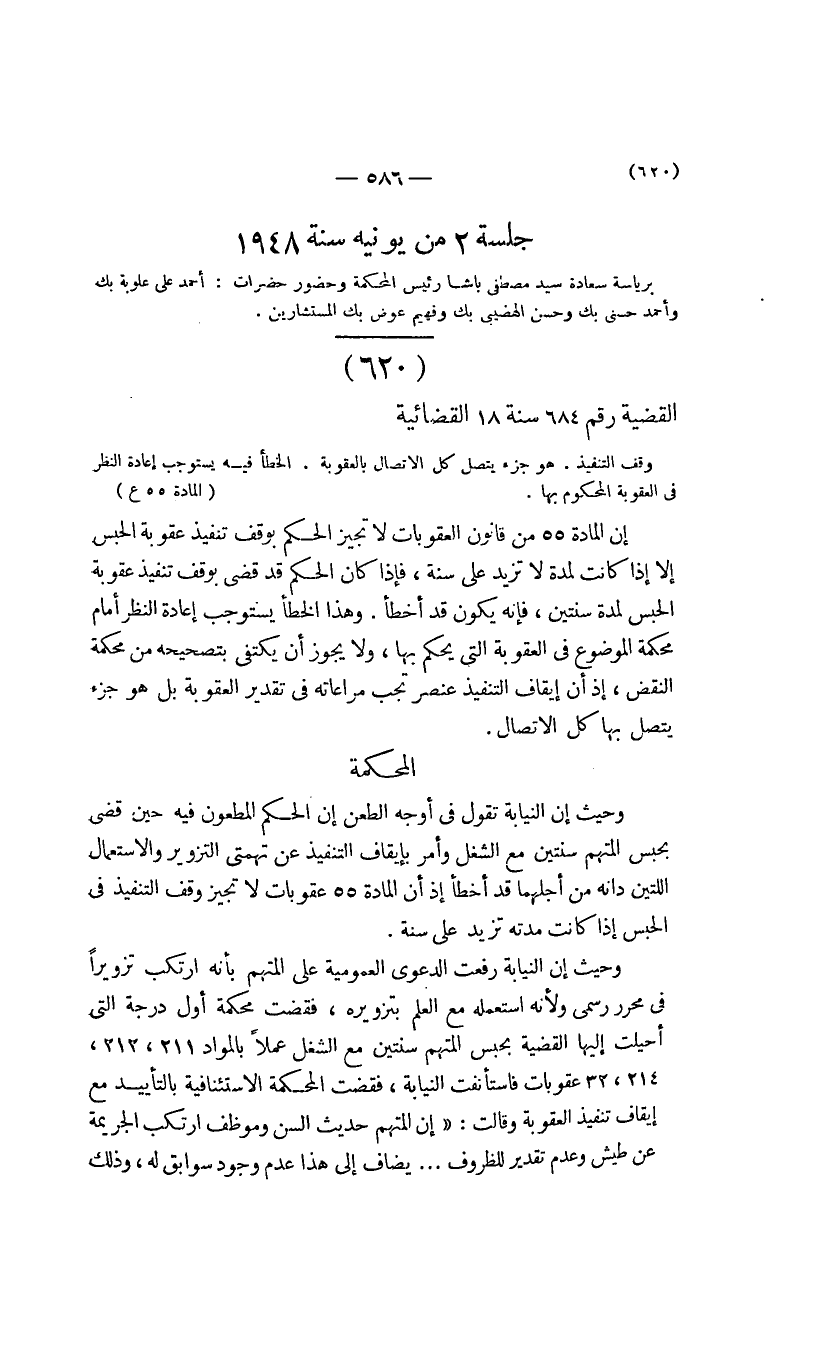 (٦٢٠)
— ٥٨٦ —
جلسة ٢ من يونيه سنة ١٩٤٨
برياسة سعادة سيد مصطفى باشا رئيس المحكمة وحضور حضرات : أحمد على علوبة بك
وأحمد حسنى بك وحسن الهضيبى بك وفهيم عوض بك المستشارين .
(٦٢٠)
القضية رقم ٦٨٤ سنة ١٨ القضائية
وقف التنفيذ . هو جزء يتصل كل الاتصال بالعقوبة . الخطأ فيه يستوجب إعادة النظر
فى العقوبة المحكوم بها . ( المادة ٥٥ ع )
إن المادة ٥٥ من قانون العقوبات لا تجيز الحكم بوقف تنفيذ عقوبة الحبس
إلا إذا كانت لمدة لا تزيد على سنة ، فإذا كان الحكم قد قضى بوقف تنفيذ عقوبة
الحبس لمدة سنتين ، فإنه يكون قد أخطأ . وهذا الخطأ يستوجب إعادة النظر أمام
محكمة الموضوع فى العقوبة التي يحكم بها ، ولا يجوز أن يكتفى بتصحيحه من محكمة
النقض ، إذ أن إيقاف التنفيذ عنصر تجب مراعاته فى تقدير العقوبة بل هو جزء
يتصل بها كل الاتصال .
المحكمة
وحيث إن النيابة تقول فى أوجه الطعن إن الحكم المطعون فيه حين قضى
بحبس المتهم سنتين مع الشغل وأمر بإيقاف التنفيذ عن تهمتى التزوير والاستعمال
اللتين دانه من أجلهما قد أخطأ إذ أن المادة ٥٥ عقوبات لا تجيز وقف التنفيذ فى
الحبس إذا كانت مدته تزيد على سنة .
وحيث إن النيابة رفعت الدعوى العمومية على المتهم بأنه ارتكب تزويراً
فى محرر رسمى ولأنه استعمله مع العلم بتزويره ، فقضت محكمة أول درجة التى
أحيلت إليها القضية بحبس المتهم سنتين مع الشغل عملاً بالمواد ٢١١ ، ٢١٢ ،
٢١٤ ، ٣٢ عقوبات فاستأنفت النيابة ، فقضت المحكمة الاستئنافية بالتأييد مع
إيقاف تنفيذ العقوبة وقالت : « إن المتهم حديث السن وموظف ارتكب الجريمة
عن طيش وعدم تقدير للظروف ... يضاف إلى هذا عدم وجود سوابق له ، وذلك